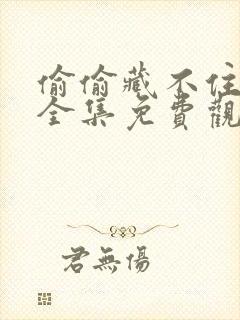 偷偷藏不住
全集免費觀
君無傷